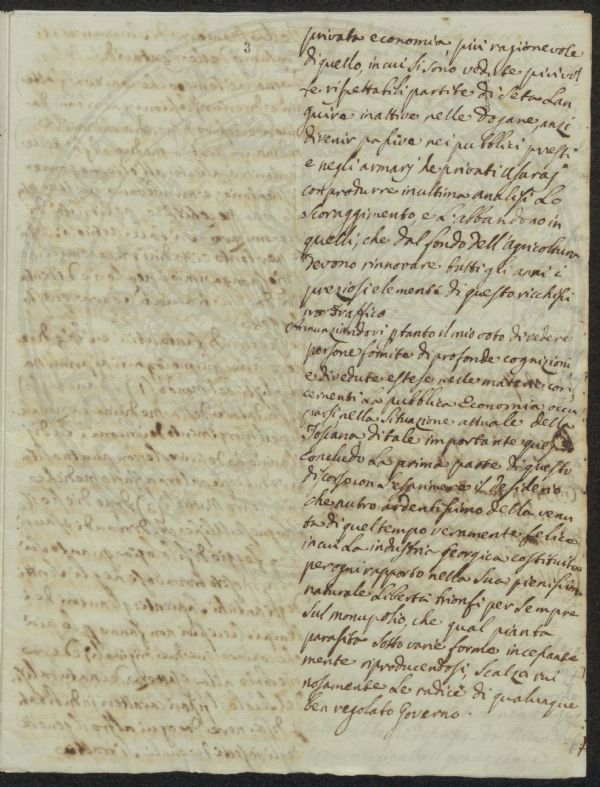 3
privata economia, più ragionevole
di quello, in cui si sono vedute più vol
te rispettabili partite di Seta Lan
guire inattive nelle Dogane, anzi
divenir passive nei pubblici presti
e negli armarj de privati Usuraj
con produrre in ultima analisi Lo
Scoraggimento e l'abbandono in
quelli, che dal fondo dell'Agricoltura
devono rinnovare tutti gli anni i
preziosi elementi di questo ricchissi
mo Traffico
Annunziandovi ptanto il mio voto di vedere
persone fornite di profonde cognizioni
e di vedute estese nelle materie con
cernenti La pubblica Economia occu
parsi nella Situazione attuale della
Toscana di tale importante
Concludo La prima parte di questo
discorso con l'esprimere il desiderio
che nutro ardentissimo della venu
ta di quel tempo veramente felice
in cui La industria georgica costituita
per ogni rapporto nella Sua pienissima
naturale Libertà trionfi per sempre
sul monopolio, che qual pianta
parasita sotto varie forme incessante
mente riproducendosi, scalza rui
nosamente Le radici di qualunque
ben regolato Governo.